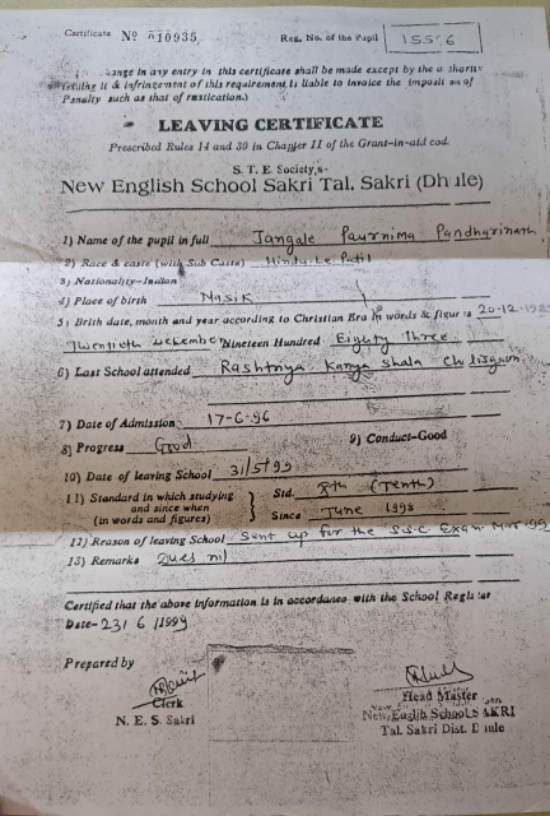 Certificate No 010935
Reg. No. of the Pupil 1556
change in any entry in this certificate shall be made except by the
& infringement of this requirement is liable to invoice the
Penalty such as that of rustication.)
LEAVING CERTIFICATE
Prescribed Rules 14 and 30 in Chapter II of the Grant-in-aid cod.
S. T. E. Society,s-
New English School Sakri Tal. Sakri (Dhule)
1) Name of the pupil in full Jangale Paurnima Pandharinath
2) Race & caste (with Sub Caste) Hindu Le Patil
3) Nationality-Indian
4) Place of birth Nasik
5) Brith date, month and year according to Christian Era in words & figur s 20-12-1983
Twentieth December Nineteen Hundred Eighty Three
6) Last School attended Rashtriya Kanya shala
7) Date of Admission 17-6-96
8) Progress Good
9) Conduct-Good
10) Date of leaving School 31/5/99
11) Standard in which studying and since when (in words and figures) } Std. (Tenth)
Since June 1998
12) Reason of leaving School Sent up for the S.S.C. Exam. Mar. 99
13) Remarks Dues nil
Certified that the above information is in accordance with the School Register
Date- 23/ 6 /1999
Prepared by
Clerk
N. E. S. Sakri
Head Master
New English School SAKRI
Tal. Sakri Dist. Dhule